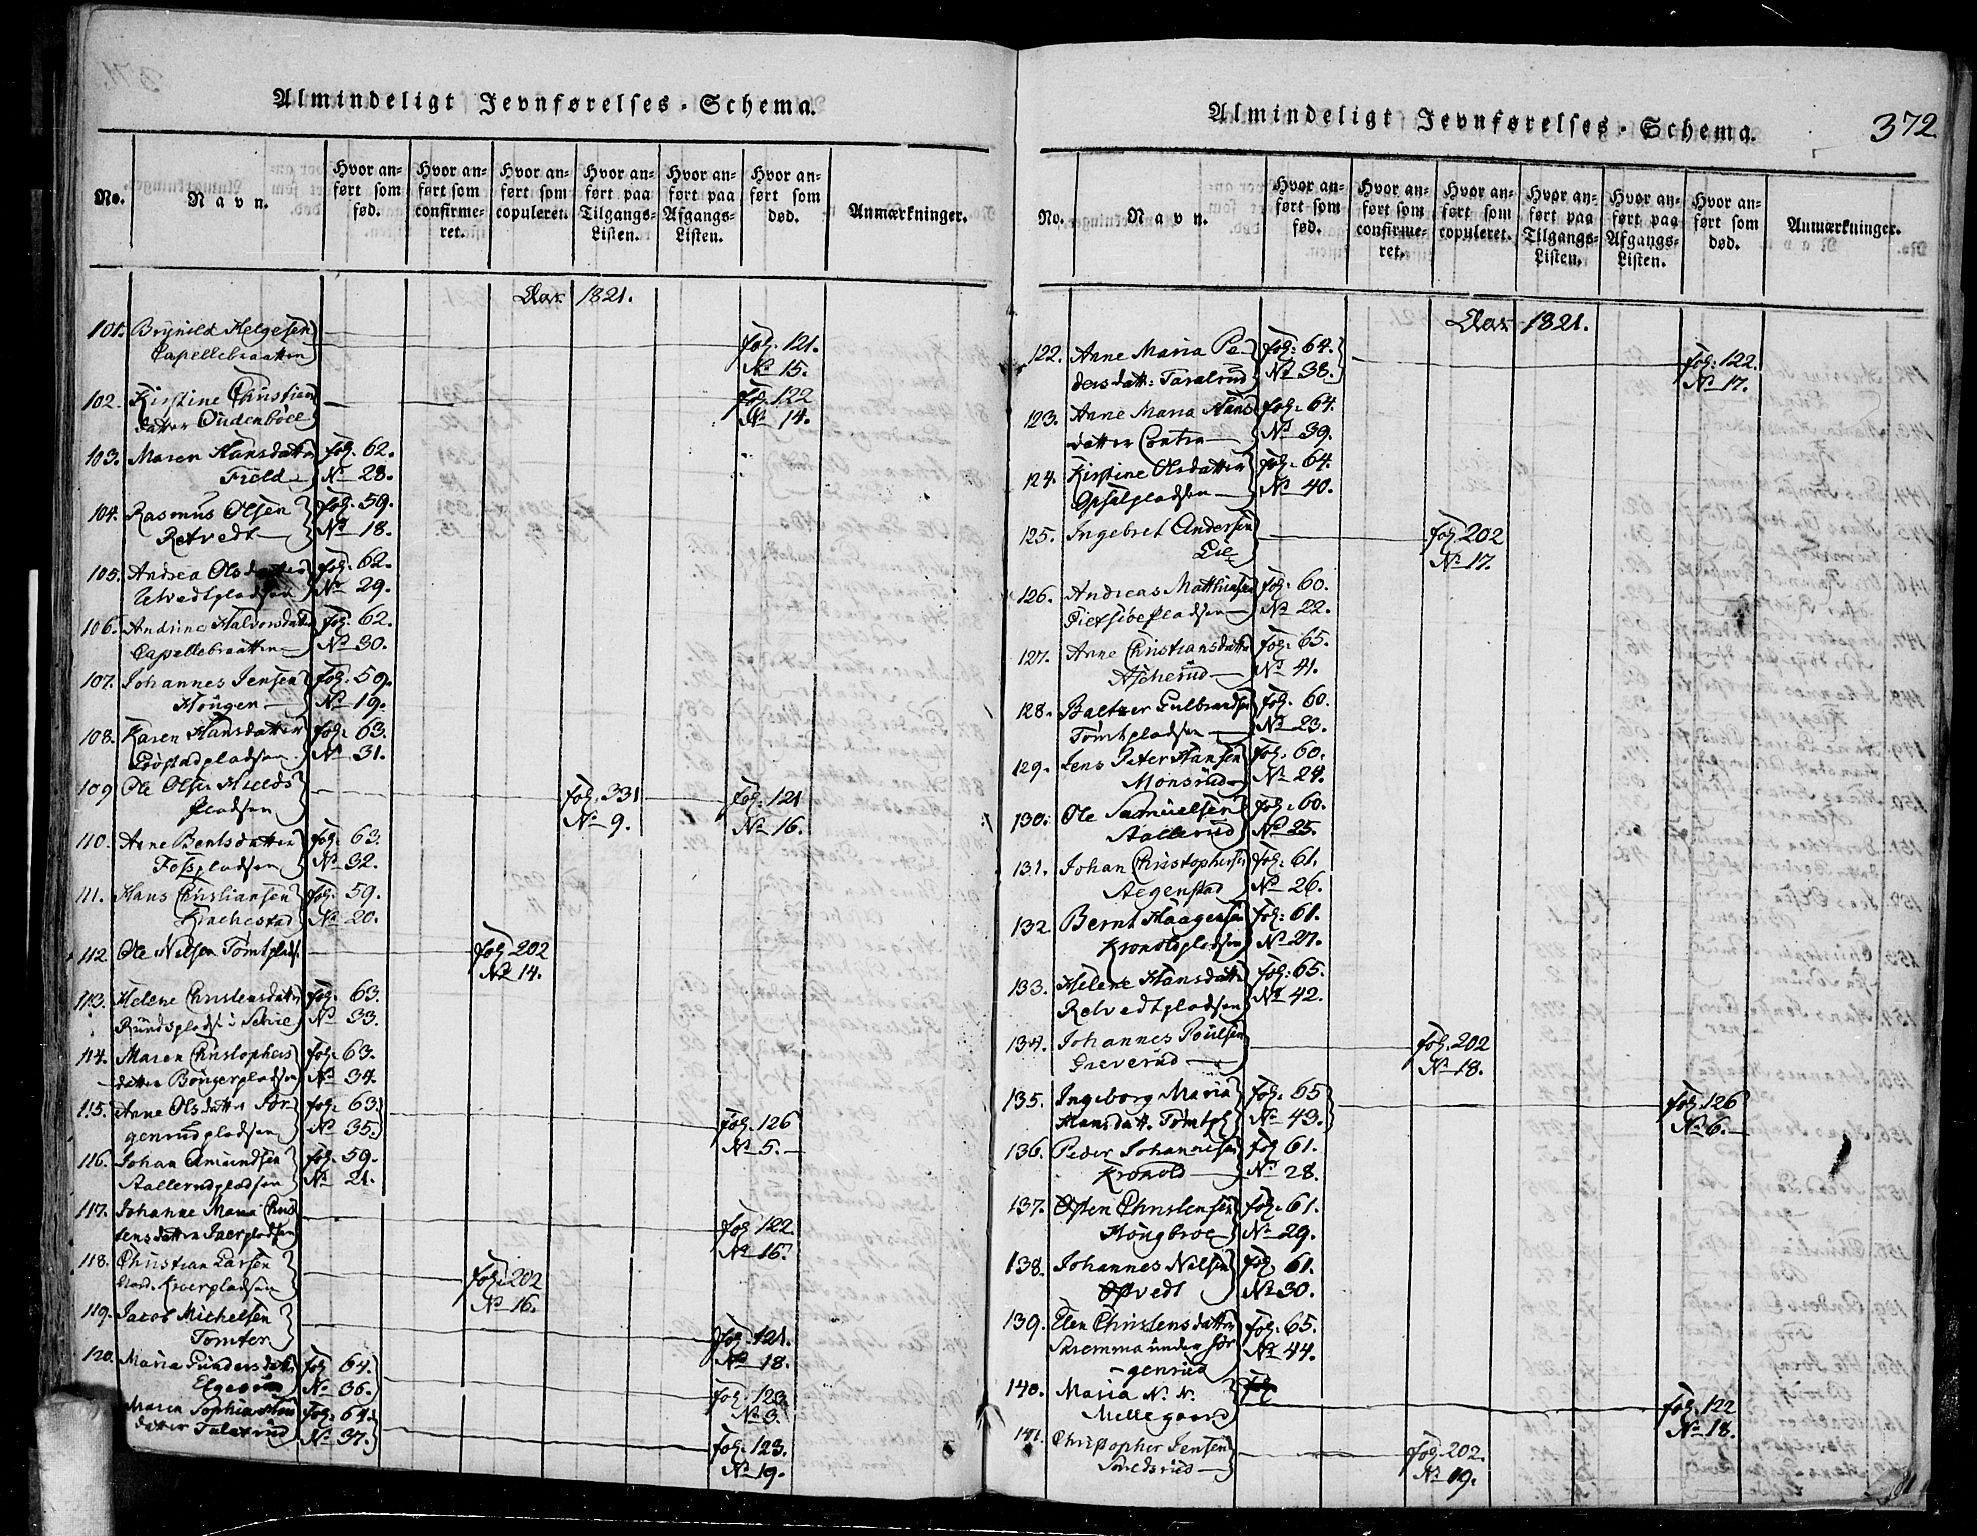 Almindeligt Jevnførelses-Schema.
No.
Navn.
Hvor an-
ført som
fød.
Hvor an-
ført som
confirme-
ret.
Hvor an-
ført som
copuleret.
Hvor an-
ført paa
Tilgangs-
Listen.
Hvor an-
ført paa
Afgangs-
Listen.
Hvor an-
ført som
død.
Anmærkninger.
Aar 1821.
101. Brynild Helgesen
Capellebraatten fol. 121.
No 15.
102. Kirstine Christian fol. 122
datter No 14.
103. Maren Hansdatter fol. 62.
Field No 28.
104. Rasmus Olsen fol. 59.
Retvedt No 18.
105. Andrea Olsdatter fol. 62.
No 29.
106. Andrine Halvorsdatter fol. 62.
Capellebraatten No 30.
107. Johannes Jensen fol. 59.
Hougen No 19.
108. Karen Hansdatter fol. 63.
No 31.
109 Ole Olsen
pladsen fol. 331 fol. 121
No 9. No 16.
110. Anne Bentsdatter fol. 63.
Fosspladsen No 32.
111. Hans Christiansen fol. 59.
No 20.
112. Ole Nilsen Tomtplads fol. 202
No 14.
113. Helene Christensdatter fol. 63.
No 33.
114. Maren Christophers fol. 63.
datter No 34.
115. Anne Olsdatter Jør- fol. 63.
genrudpladsen No 35. fol. 126
No 5.
116. Johan Amundsen fol. 59.
Aallerudpladsen No 21.
117. Johanne Maria Chris
tensdatter fol. 122.
No 16.
118. Christian Larsen
fol. 202
No 16.
119. Jacob Michelsen
Tomter fol. 121.
No 18.
120. Maria Gundersdatter fol. 64.
No 36. fol. 123
No 3.
Maren Sophia fol. 64.
datter No 37. fol. 123.
No 19.
Almindeligt Jevnførelses-Schema.
372
No.
Navn.
Hvor an-
ført som
fød.
Hvor an-
ført som
confirme-
ret.
Hvor an-
ført som
copuleret.
Hvor an-
ført paa
Tilgangs-
Listen.
Hvor an-
ført paa
Afgangs-
Listen.
Hvor an-
ført som
død.
Anmærkninger.
Aar 1821.
122. Anne Maria Pe- fol. 64. fol. 122.
dersdatt: Taralrud No 38. No 17.
123. Anne Maria Hans fol. 64.
datter No 39.
124. Kirstine Olsdatter fol. 64.
Opsalpladsen No 40.
125. Ingebret Andersen fol. 202
Lie No 17.
126. Andreas Matthiasen fol. 60.
No 22.
127. Anne Christiansdatter fol. 65.
Ascherud No 41.
128. Baltzer Gulbrandsen fol. 60.
Tomtpladsen No 23.
129. Jens Peter Hansen fol. 60.
Monsrud No 24.
130. Ole Samuelsen fol. 60.
Aallerud No 25.
131. Johan Christophersen fol. 61.
Aegenstad No 26.
132 Bernt Haagensen fol. 61.
Kronoldpladsen No 27.
133. Helene Hansdatter fol. 65.
Retvedtpladsen No 42.
134. Johannes Poulsen fol. 202
Greverud No 18.
135. Ingeborg Maria fol. 65 fol. 126
Hansdatt. Tomtpl. No 43. No 6.
136. Peder Johannesen fol. 61.
Kronold No 28.
137. Østen Christensen fol. 61.
Hougbroe No 29.
138. Johannes Nilsen fol. 61.
Østvedt No 30.
139. Elen Christensdatter fol. 65.
Skremma under Jør No 44.
-genrud
140. Maria N. N. fol. fol. 122
Mellegaard No 18.
141. Christopher Jensen fol. 202.
No 19.